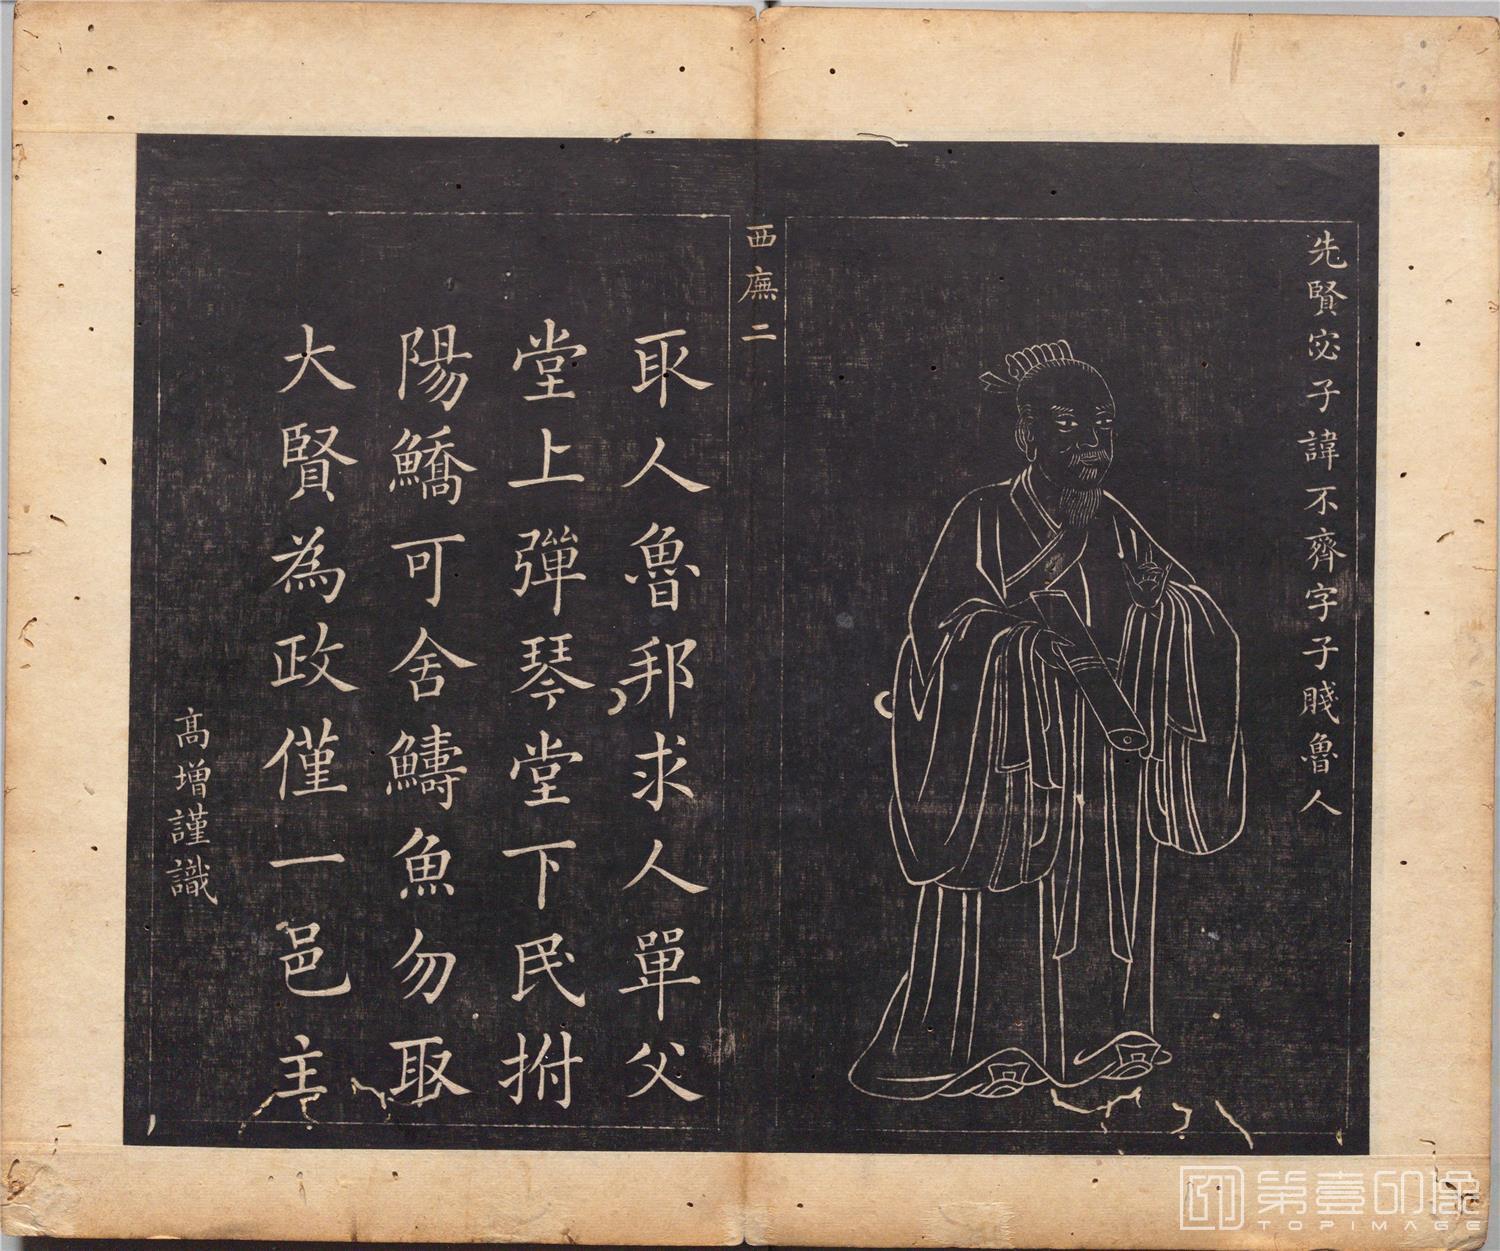 先賢宓子諱不齊字子賤魯人
西廡二
取人魯邦求人單父
堂上彈琴堂下民拊
陽鱎可舍鱣魚勿取
大賢為政僅一邑主
高增謹識
第壹印像
TOPIMAGE